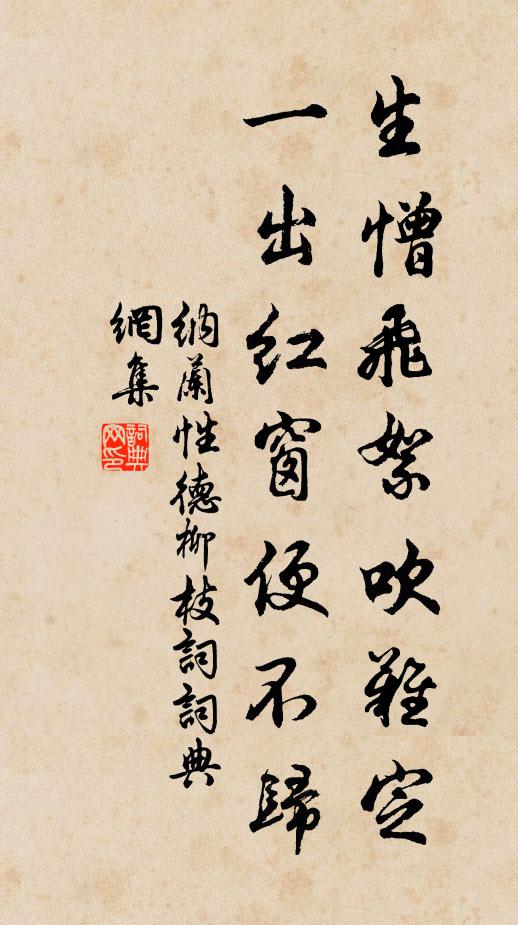 生憎飛絮吹難定
一出红窗便不歸
納蘭性德柳枝詞詞典
網集
詞典
网印